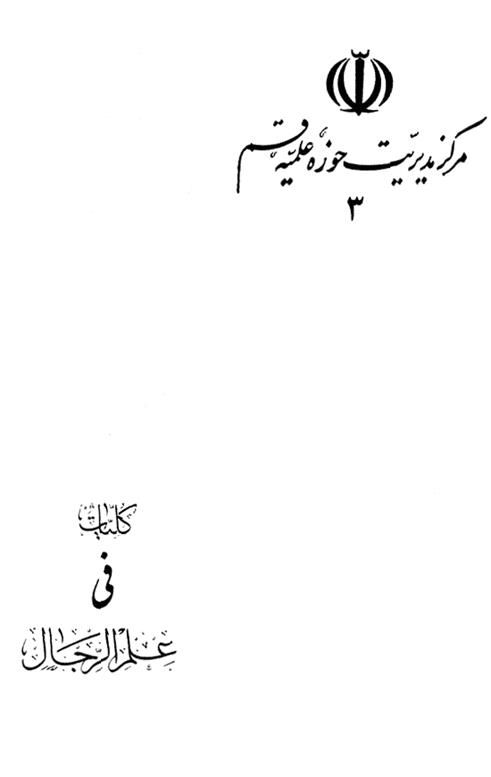 مرکز مدیریت حوزه علمیه قم
۳
کلیات
فی
علم الرجال